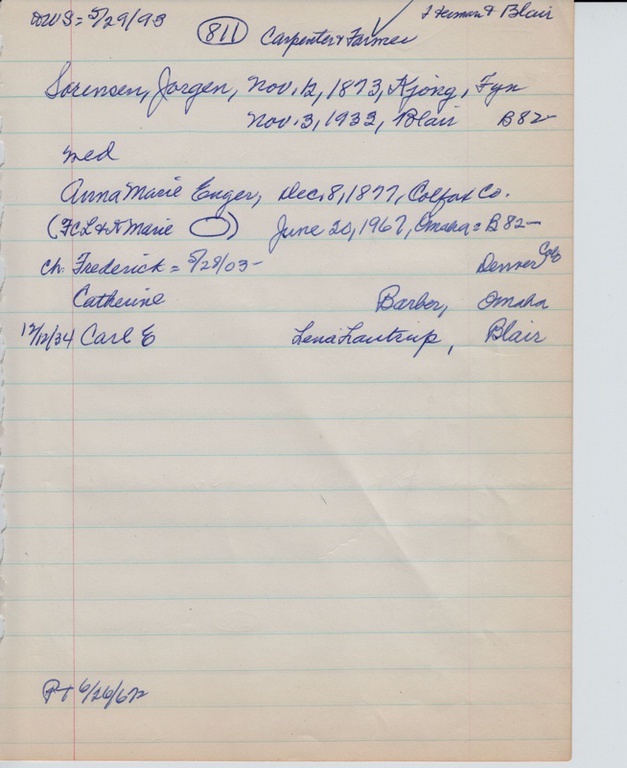 DWS = 5/29/93
811
Carpenter & Farmer
Blair
Sorensen, Jorgen, Nov. 12, 1873, Kjong, Fyn
Nov. 3, 1933, Blair B82
med
Anna Marie Enger, Dec. 8, 1877, Colfax Co.
Marie June 20, 1967, Omaha = B82
Ch. Frederick = 5/29/03 - Denver Colo
Catherine Barber, Omaha
12/12/34 Carl E Lena Lautrup, Blair
Pt 6/26/67